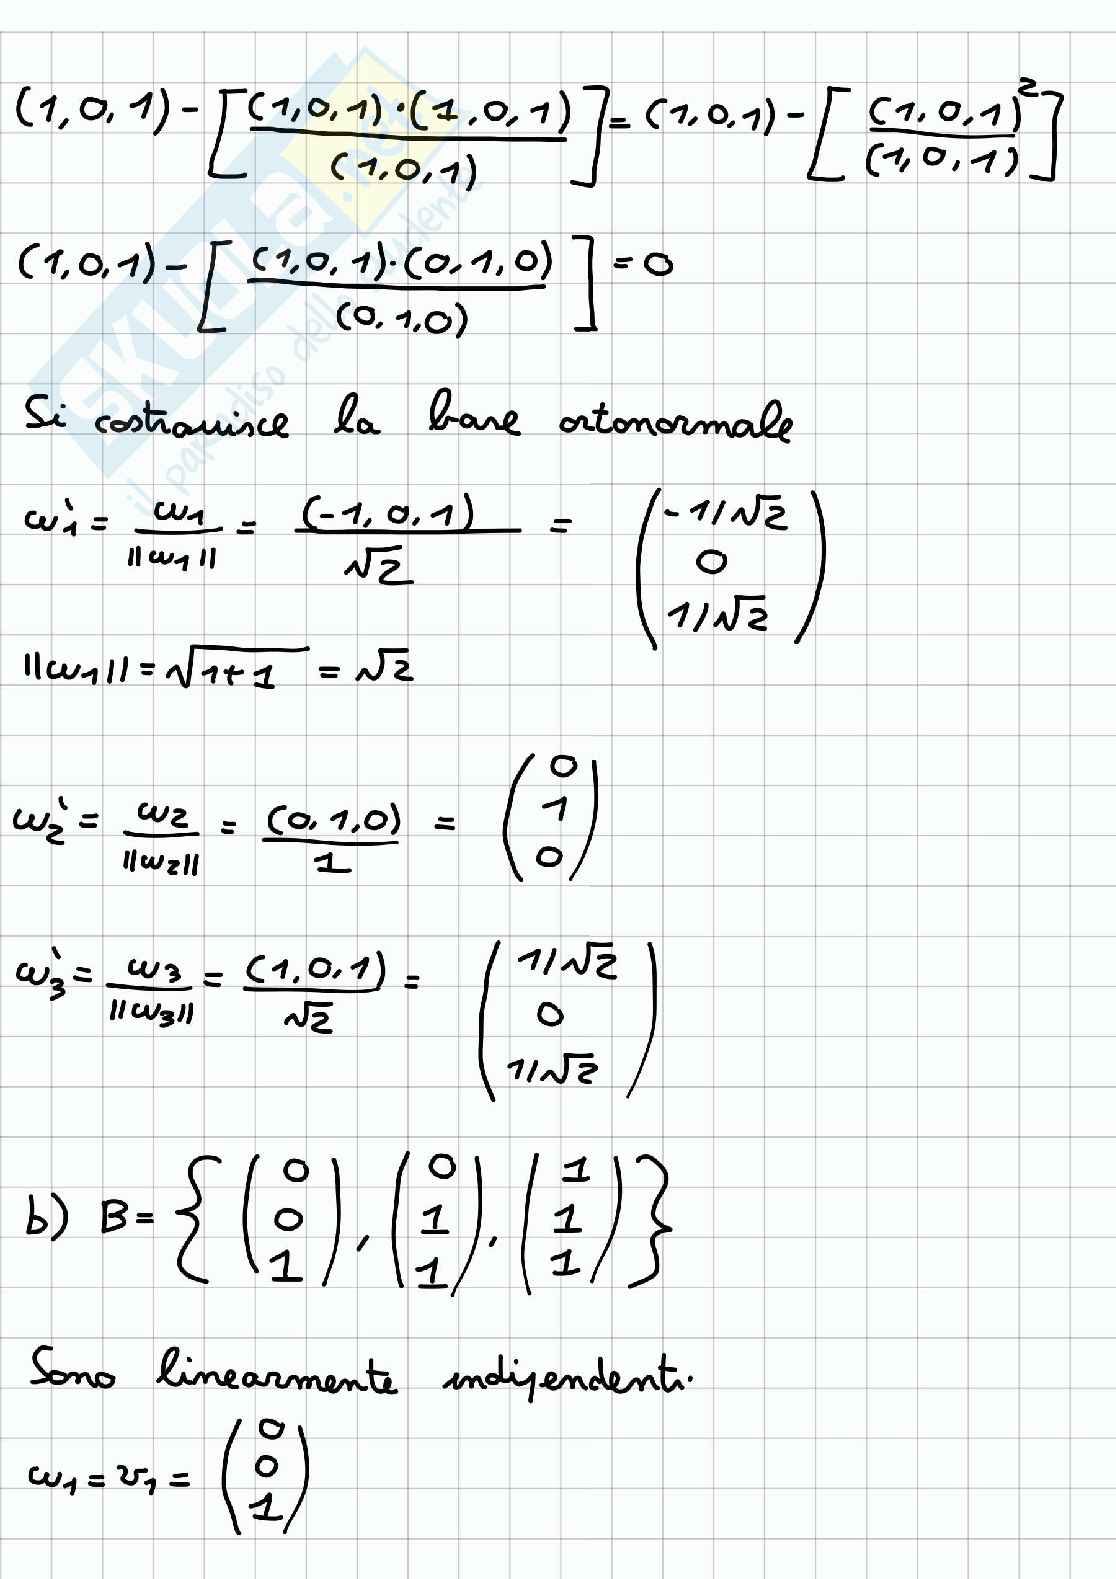 (1,0,1) - [(1,0,1)·(1,0,1) / (1,0,1)] = (1,0,1) - [(1,0,1)² / (1,0,1)]
(1,0,1) - [(1,0,1)·(0,1,0) / (0,1,0)] = 0
Si costruisce la base ortonormale
w1' = w1 / ||w1|| = (-1,0,1) / √2 = (-1/√2 0 1/√2)
||w1|| = √1+1 = √2
w2' = w2 / ||w2|| = (0,1,0) / 1 = (0 1 0)
w3' = w3 / ||w3|| = (1,0,1) / √2 = (1/√2 0 1/√2)
b) B = {(0 0 1), (0 1 1), (1 1 1)}
Sono linearmente indipendenti.
w1 = v1 = (0 0 1)
SKUOLA.net
il paradiso dello studente